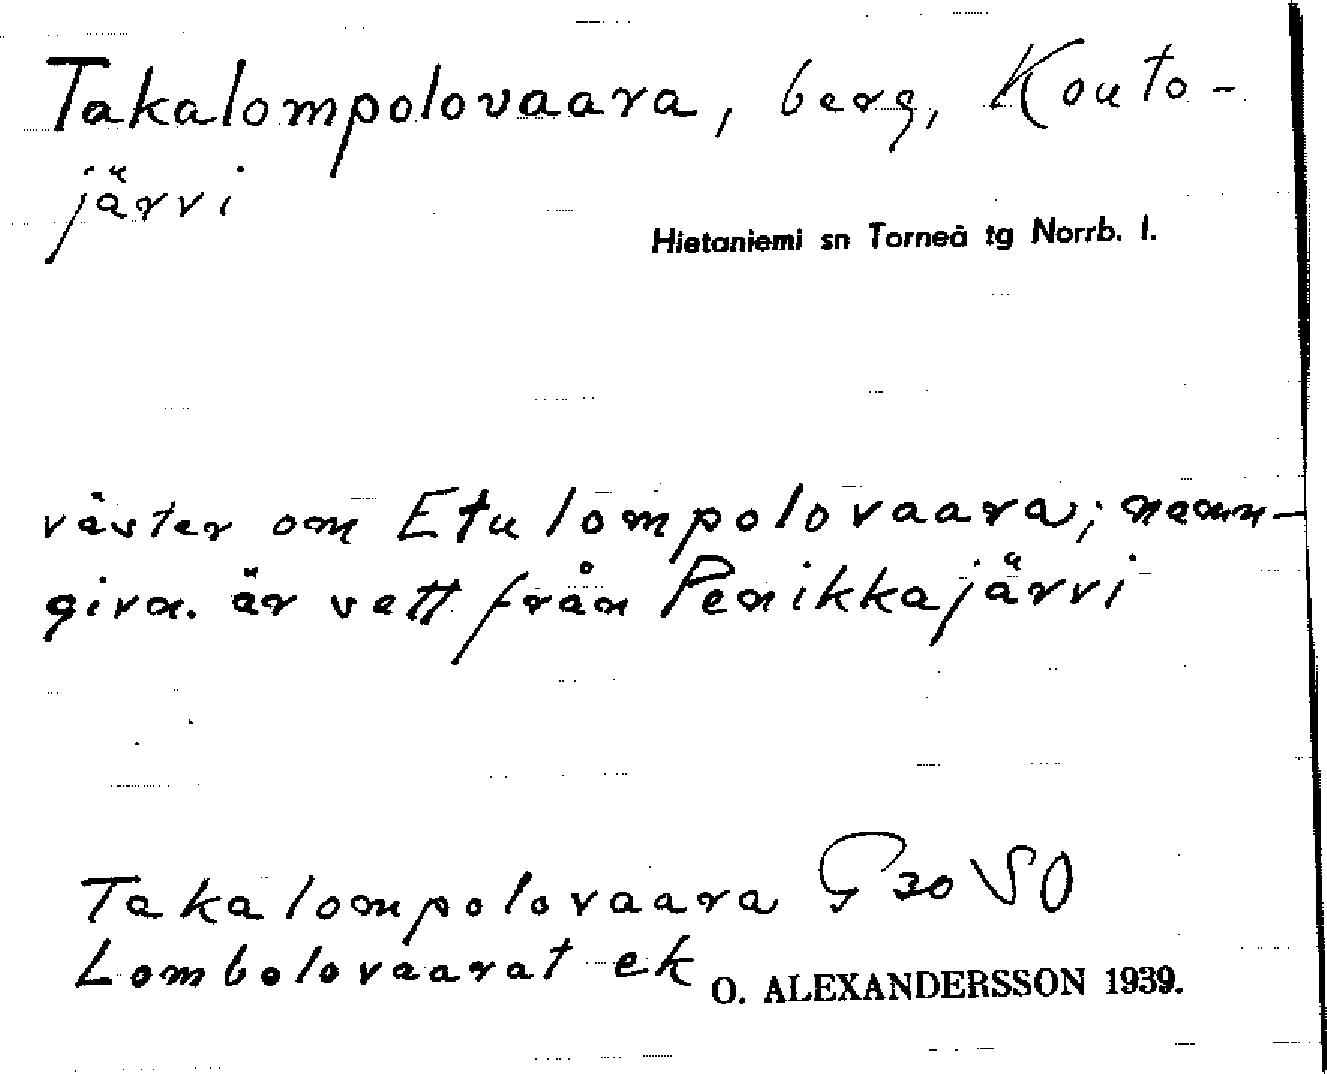 Takalompolovaara, berg, Kouto-
järvi
Hietaniemi sn Torneå tg Norrb. l.
väster om Etulompolovaara; namn-
givn. är sett från Penikkajärvi
Takalompolovaara G 30 SO
Lombolovaarat ek
O. ALEXANDERSSON 1939.